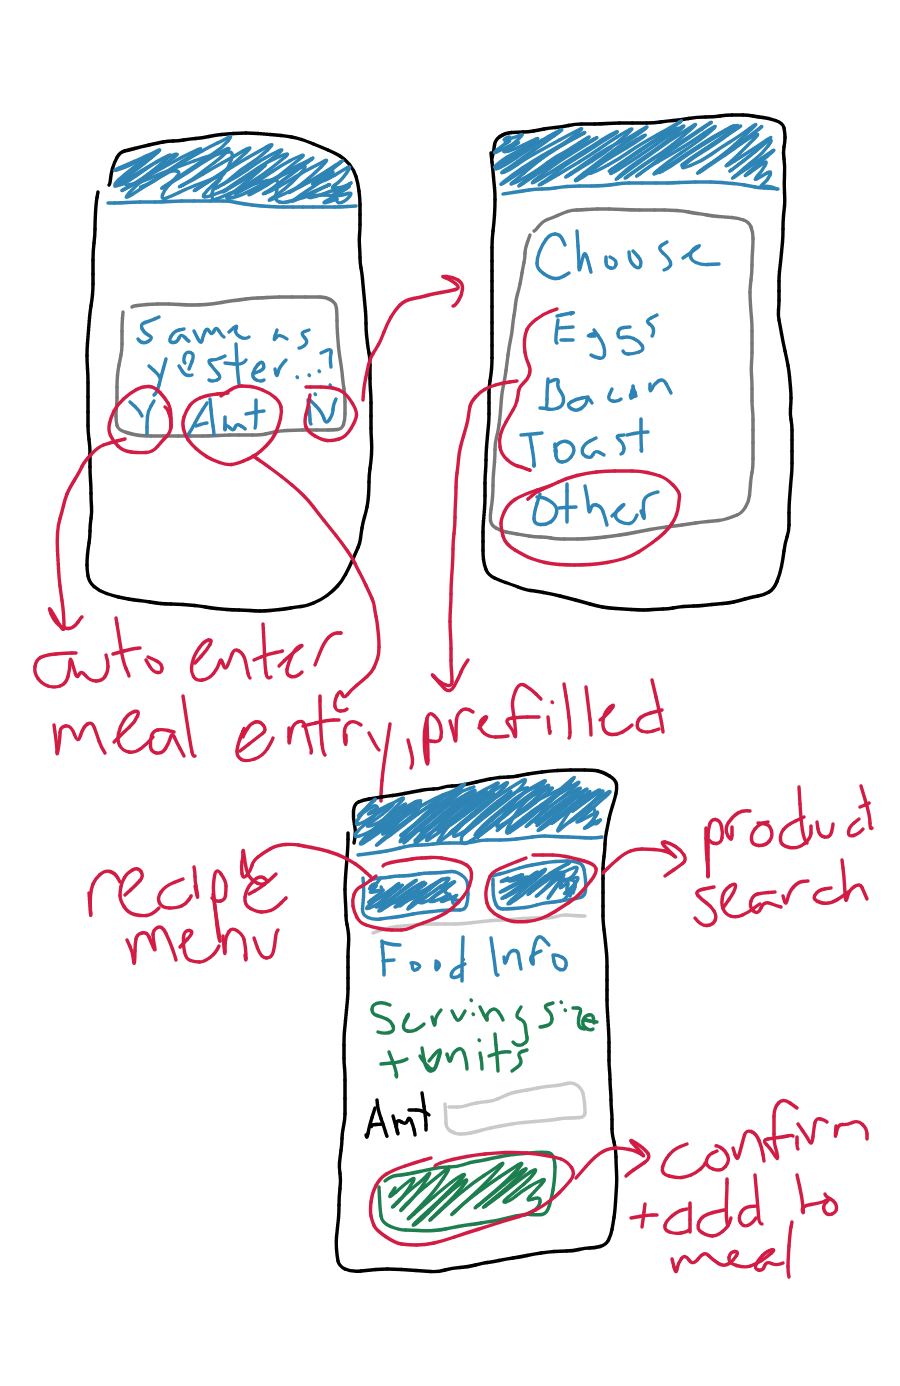 Same as
yester...?
Y Amt N
Choose
Eggs
Bacon
Toast
Other
auto enter
meal entry, prefilled
recipe
menu
product
search
Food Info
Serving size
+ units
Amt
confirm
+ add to
meal